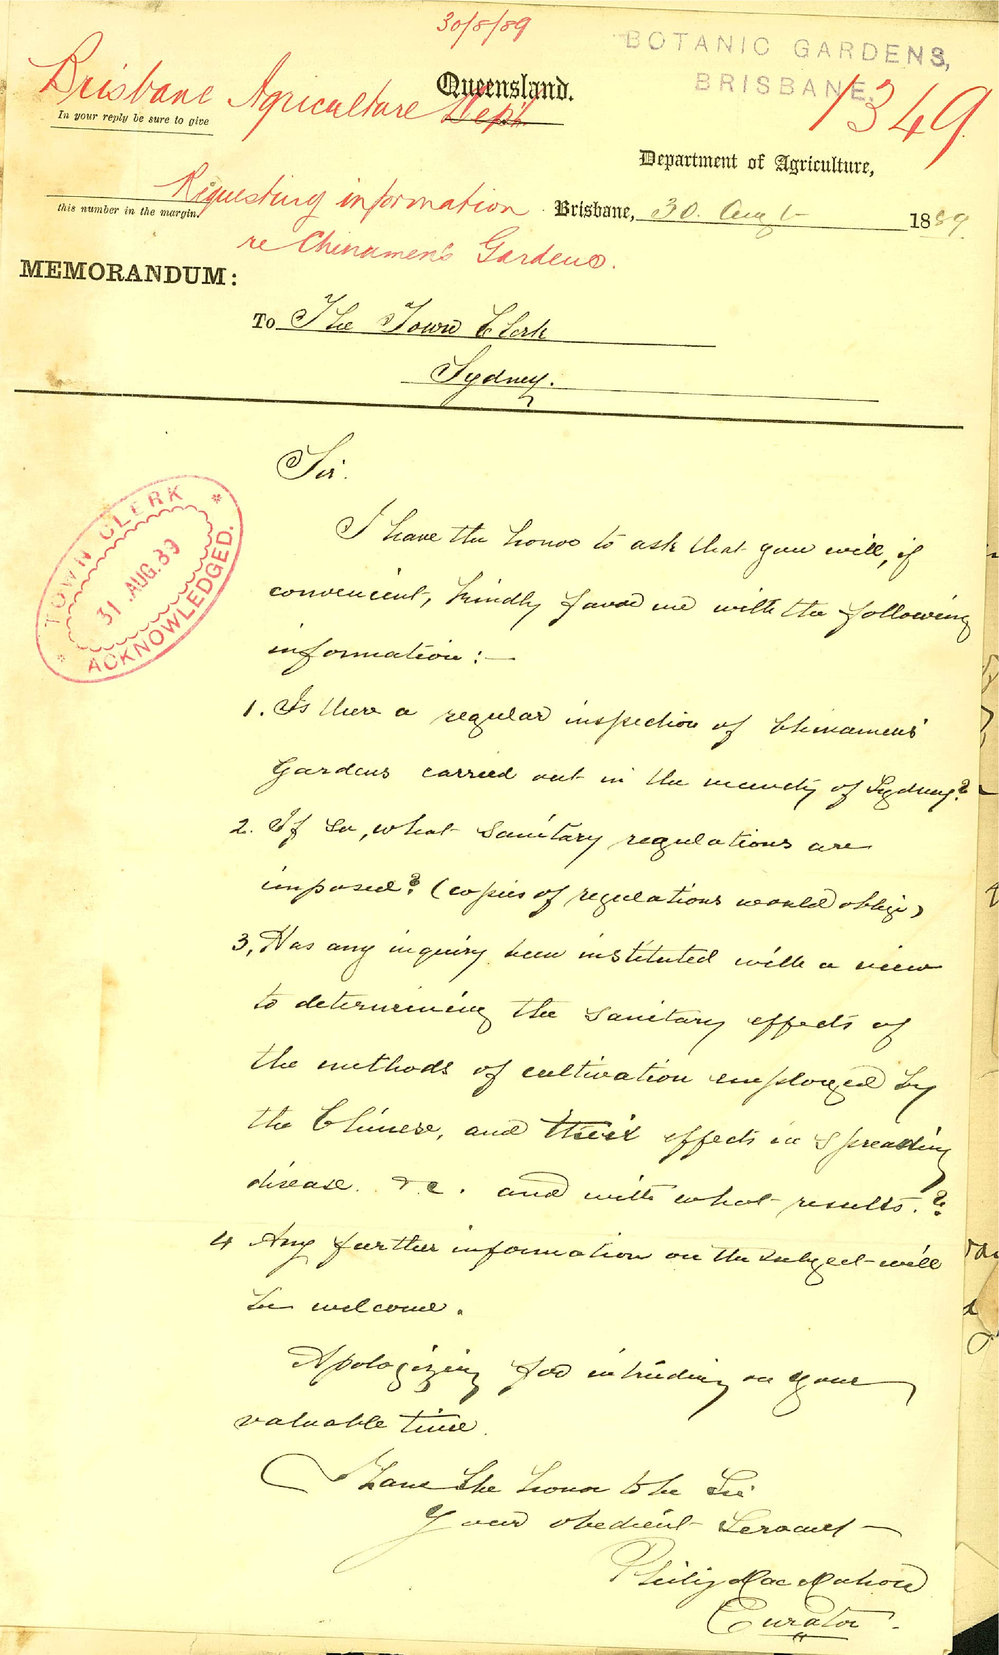 30/8/89
BOTANIC GARDENS,
BRISBANE.
1349
Queensland.
Brisbane Agriculture Dept.
In your reply be sure to give
Department of Agriculture,
Requesting information
this number in the margin.
Brisbane, 30. Augt 1889.
re Chinamen's Gardens.
MEMORANDUM:
To The Town Clerk
Sydney.
TOWN CLERK
31 AUG. 89
ACKNOWLEDGED.
Sir.
I have the honor to ask that you will, if
convenient, kindly favor me with the following
information:—
1. Is there a regular inspection of Chinamens'
Gardens carried out in the vicinity of Sydney?
2. If so, what sanitary regulations are
imposed? (copies of regulations would oblige)
3, Has any inquiry been instituted with a view
to determining the sanitary effects of
the methods of cultivation employed by
the Chinese, and their effects in spreading
disease. &c. and with what results.?
4 Any further information on the subject will
be welcome.
Apologizing for intruding on your
valuable time.
I have the honor to be Sir
Your obedient Servant
Philip Mac Mahon
Curator.